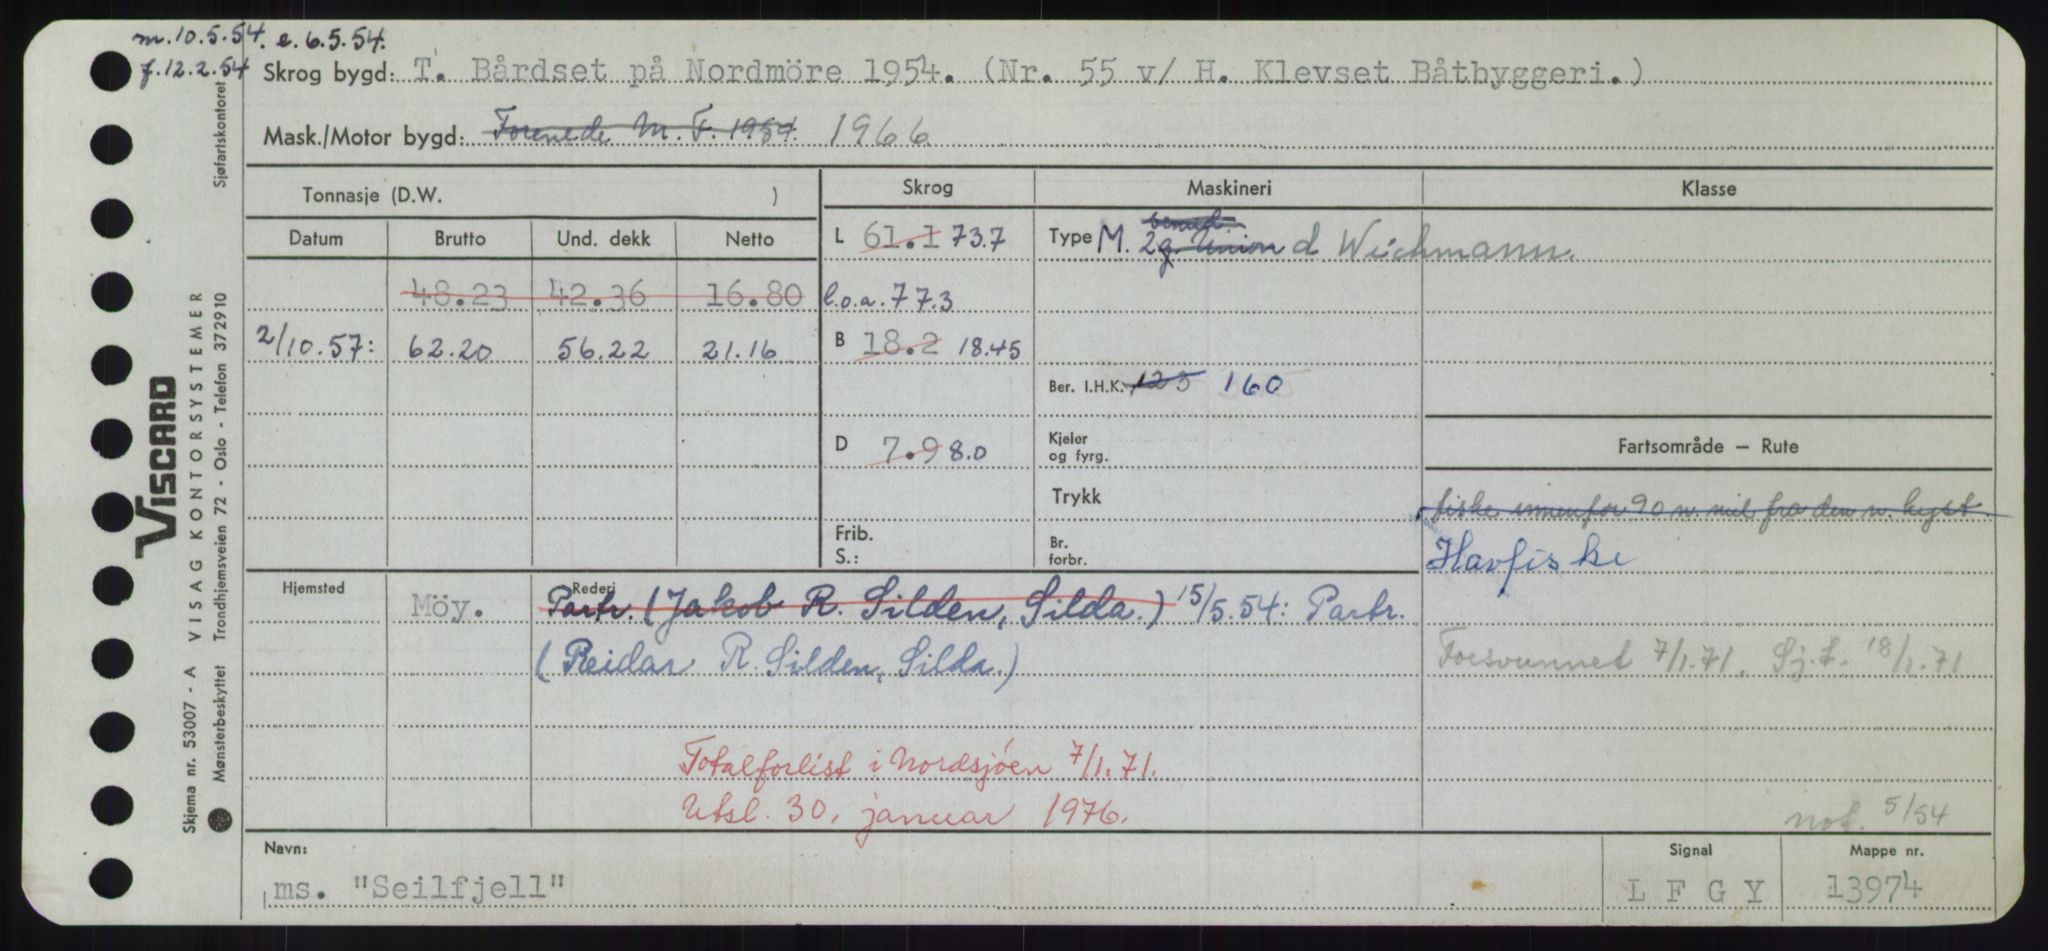 m. 10.5.54. e. 6.5.54.
f. 12.2.54
Skrog bygd: T. Bårdset på Nordmöre 1954. (Nr. 55 v/ H. Klevset Båtbyggeri.)
Mask./Motor bygd: Forenede M. F. 1954. 1966
Tonnasje (D.W. )
Skrog
Maskineri
Klasse
Datum Brutto Und. dekk Netto
L 61.1 73.7
Type M. 2g. Union d Wichmann.
48.23 42.36 16.80
l.o.a. 77.3
2/10.57: 62.20 56.22 21.16
B 18.2 18.45
Ber. I.H.K. 123 160
D 7.9 8.0
Kjeler
og fyrg.
Fartsområde – Rute
Trykk
fiske innenfor 90 n. mil fra den n. kyst.
Frib.
S.:
Br.
forbr.
Havfiske
Hjemsted
Rederi
Möy. Partr. (Jakob R. Silden, Silda.) 15/5.54: Partr.
(Reidar R. Silden, Silda.)
Forsvunnet 7/1.71. Sj.f. 18/1.71
Totalforlist i Nordsjöen 7/1.71.
Utsl. 30. januar 1976.
not. 5/54
Navn:
ms. "Seilfjell"
Signal
L F G Y
Mappe nr.
13974
VISCARD
VISAG KONTORSYSTEMER
Skjema nr. 53007 - A
Mønsterbeskyttet Trondhjemsveien 72 - Oslo - Telefon 372910
Sjøfartskontoret